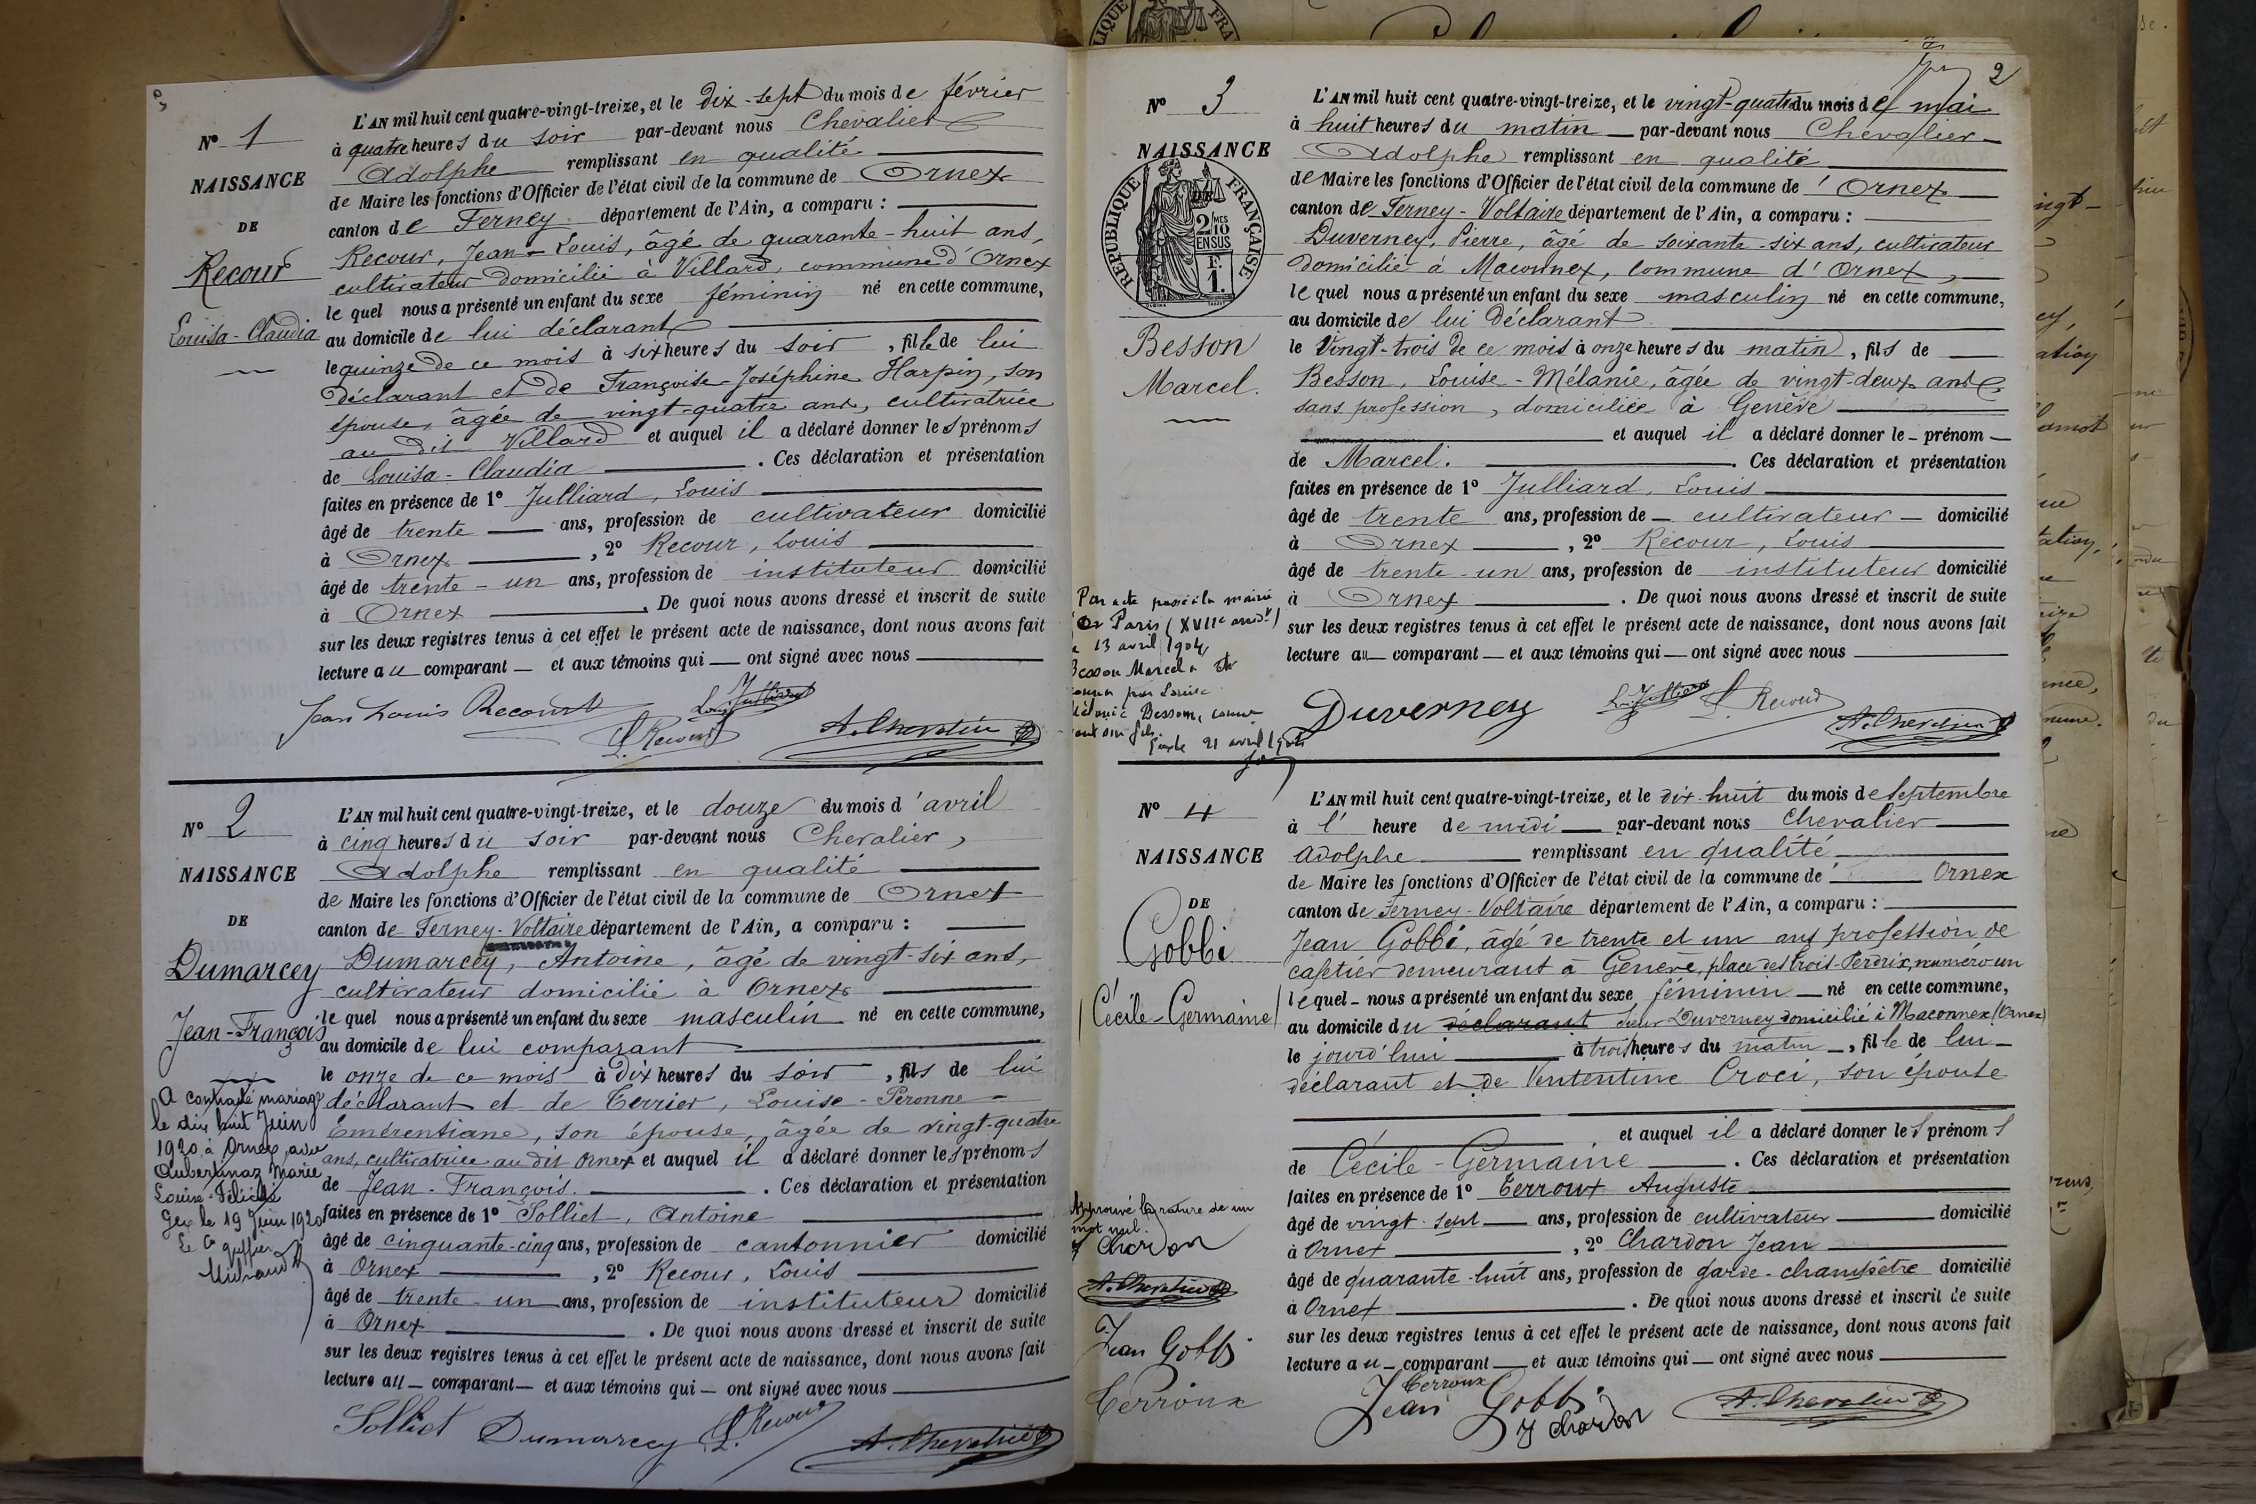 N° 1
NAISSANCE
DE
Recour
Louisa-Claudia
L'AN mil huit cent quatre-vingt-treize, et le dix-sept du mois de février
à quatre heures du soir par-devant nous Chevalier
Adolphe remplissant en qualité
de Maire les fonctions d'Officier de l'état civil de la commune de Ornex
canton de Ferney département de l'Ain, a comparu :
Recour, Jean-Louis, âgé de quarante-huit ans,
cultivateur domicilié à Villard, commune d'Ornex
lequel nous a présenté un enfant du sexe féminin né en cette commune,
au domicile de lui déclarant
le quinze de ce mois à six heures du soir, fille de lui
déclarant et de Françoise-Joséphine Harpin, son
épouse, âgée de vingt-quatre ans, cultivatrice
au dit Villard et auquel il a déclaré donner les prénoms
de Louisa-Claudia. Ces déclaration et présentation
faites en présence de 1° Julliard, Louis
âgé de trente ans, profession de cultivateur domicilié
à Ornex, 2° Recour, Louis
âgé de trente-un ans, profession de instituteur domicilié
à Ornex. De quoi nous avons dressé et inscrit de suite
sur les deux registres tenus à cet effet le présent acte de naissance, dont nous avons fait
lecture au comparant et aux témoins qui ont signé avec nous
Jean Louis Recourt
Louis Julliard
L. Recour
A. Chevalier
N° 2
NAISSANCE
DE
Dumarcey
Jean-François
A contracté mariage
le dix huit Juin
1920 à Ornex, avec
Aubertinaz Marie
Louise-Félicie
Gex le 19 Juin 1920
Le Cis greffier
L'AN mil huit cent quatre-vingt-treize, et le douze du mois d'avril
à cinq heures du soir par-devant nous Chevalier,
Adolphe remplissant en qualité
de Maire les fonctions d'Officier de l'état civil de la commune de Ornex
canton de Ferney-Voltaire département de l'Ain, a comparu :
Dumarcey, Antoine, âgé de vingt-six ans,
cultivateur domicilié à Ornex
lequel nous a présenté un enfant du sexe masculin né en cette commune,
au domicile de lui comparant
le onze de ce mois à dix heures du soir, fils de lui
déclarant et de Terrier, Louise-Péronne-
Émérentiane, son épouse, âgée de vingt-quatre
ans, cultivatrice au dit Ornex et auquel il a déclaré donner les prénoms
de Jean-François. Ces déclaration et présentation
faites en présence de 1° Solliet, Antoine
âgé de cinquante-cinq ans, profession de cantonnier domicilié
à Ornex, 2° Recour, Louis
âgé de trente-un ans, profession de instituteur domicilié
à Ornex. De quoi nous avons dressé et inscrit de suite
sur les deux registres tenus à cet effet le présent acte de naissance, dont nous avons fait
lecture au comparant et aux témoins qui ont signé avec nous
Solliet Dumarcey L. Recour A. Chevalier
2
N° 3
NAISSANCE
DE
RÉPUBLIQUE FRANÇAISE
2/10 MES
EN SUS
F.
1.
Besson
Marcel.
Par acte passé à la mairie
de Paris (XVIIe arrondt)
le 13 avril 1904
Besson Marcel a été
reconnu par Louise
Mélanie Besson, comme
étant son fils.
21 avril 1904
L'AN mil huit cent quatre-vingt-treize, et le vingt-quatre du mois de mai
à huit heures du matin par-devant nous Chevalier
Adolphe remplissant en qualité
de Maire les fonctions d'Officier de l'état civil de la commune d'Ornex
canton de Ferney-Voltaire département de l'Ain, a comparu :
Duverney, Pierre, âgé de soixante-six ans, cultivateur
domicilié à Maconnex, commune d'Ornex,
lequel nous a présenté un enfant du sexe masculin né en cette commune,
au domicile de lui déclarant
le vingt-trois de ce mois à onze heures du matin, fils de
Besson, Louise-Mélanie, âgée de vingt-deux ans
sans profession, domiciliée à Genève
et auquel il a déclaré donner le prénom
de Marcel. Ces déclaration et présentation
faites en présence de 1° Julliard, Louis
âgé de trente ans, profession de cultivateur domicilié
à Ornex, 2° Recour, Louis
âgé de trente-un ans, profession de instituteur domicilié
à Ornex. De quoi nous avons dressé et inscrit de suite
sur les deux registres tenus à cet effet le présent acte de naissance, dont nous avons fait
lecture au comparant et aux témoins qui ont signé avec nous
Duverney L. Julliard L. Recour
A. Chevalier
N° 4
NAISSANCE
DE
Gobbi
Cécile-Germaine
Approuvé la rature de un
mot nul.
J Chardon
A. Chevalier
Jean Gobbi
Terroux
L'AN mil huit cent quatre-vingt-treize, et le dix-huit du mois de septembre
à l' heure de midi par-devant nous Chevalier
Adolphe remplissant en qualité
de Maire les fonctions d'Officier de l'état civil de la commune de Ornex
canton de Ferney-Voltaire département de l'Ain, a comparu :
Jean Gobbi, âgé de trente et un ans profession de
cafetier demeurant à Genève, place des trois-Perdrix, numéro un
lequel nous a présenté un enfant du sexe féminin né en cette commune,
au domicile du déclarant sieur Duverney domicilié à Maconnex (Ornex)
le jourd'hui à trois heures du matin, fille de lui
déclarant et de Croci, son épouse
et auquel il a déclaré donner les prénoms
de Cécile-Germaine. Ces déclaration et présentation
faites en présence de 1° Terroux Auguste
âgé de vingt-sept ans, profession de cultivateur domicilié
à Ornex, 2° Chardon Jean
âgé de quarante-huit ans, profession de garde-champêtre domicilié
à Ornex. De quoi nous avons dressé et inscrit de suite
sur les deux registres tenus à cet effet le présent acte de naissance, dont nous avons fait
lecture au comparant et aux témoins qui ont signé avec nous
Terroux
Jean Gobbi A. Chevalier
J Chardon